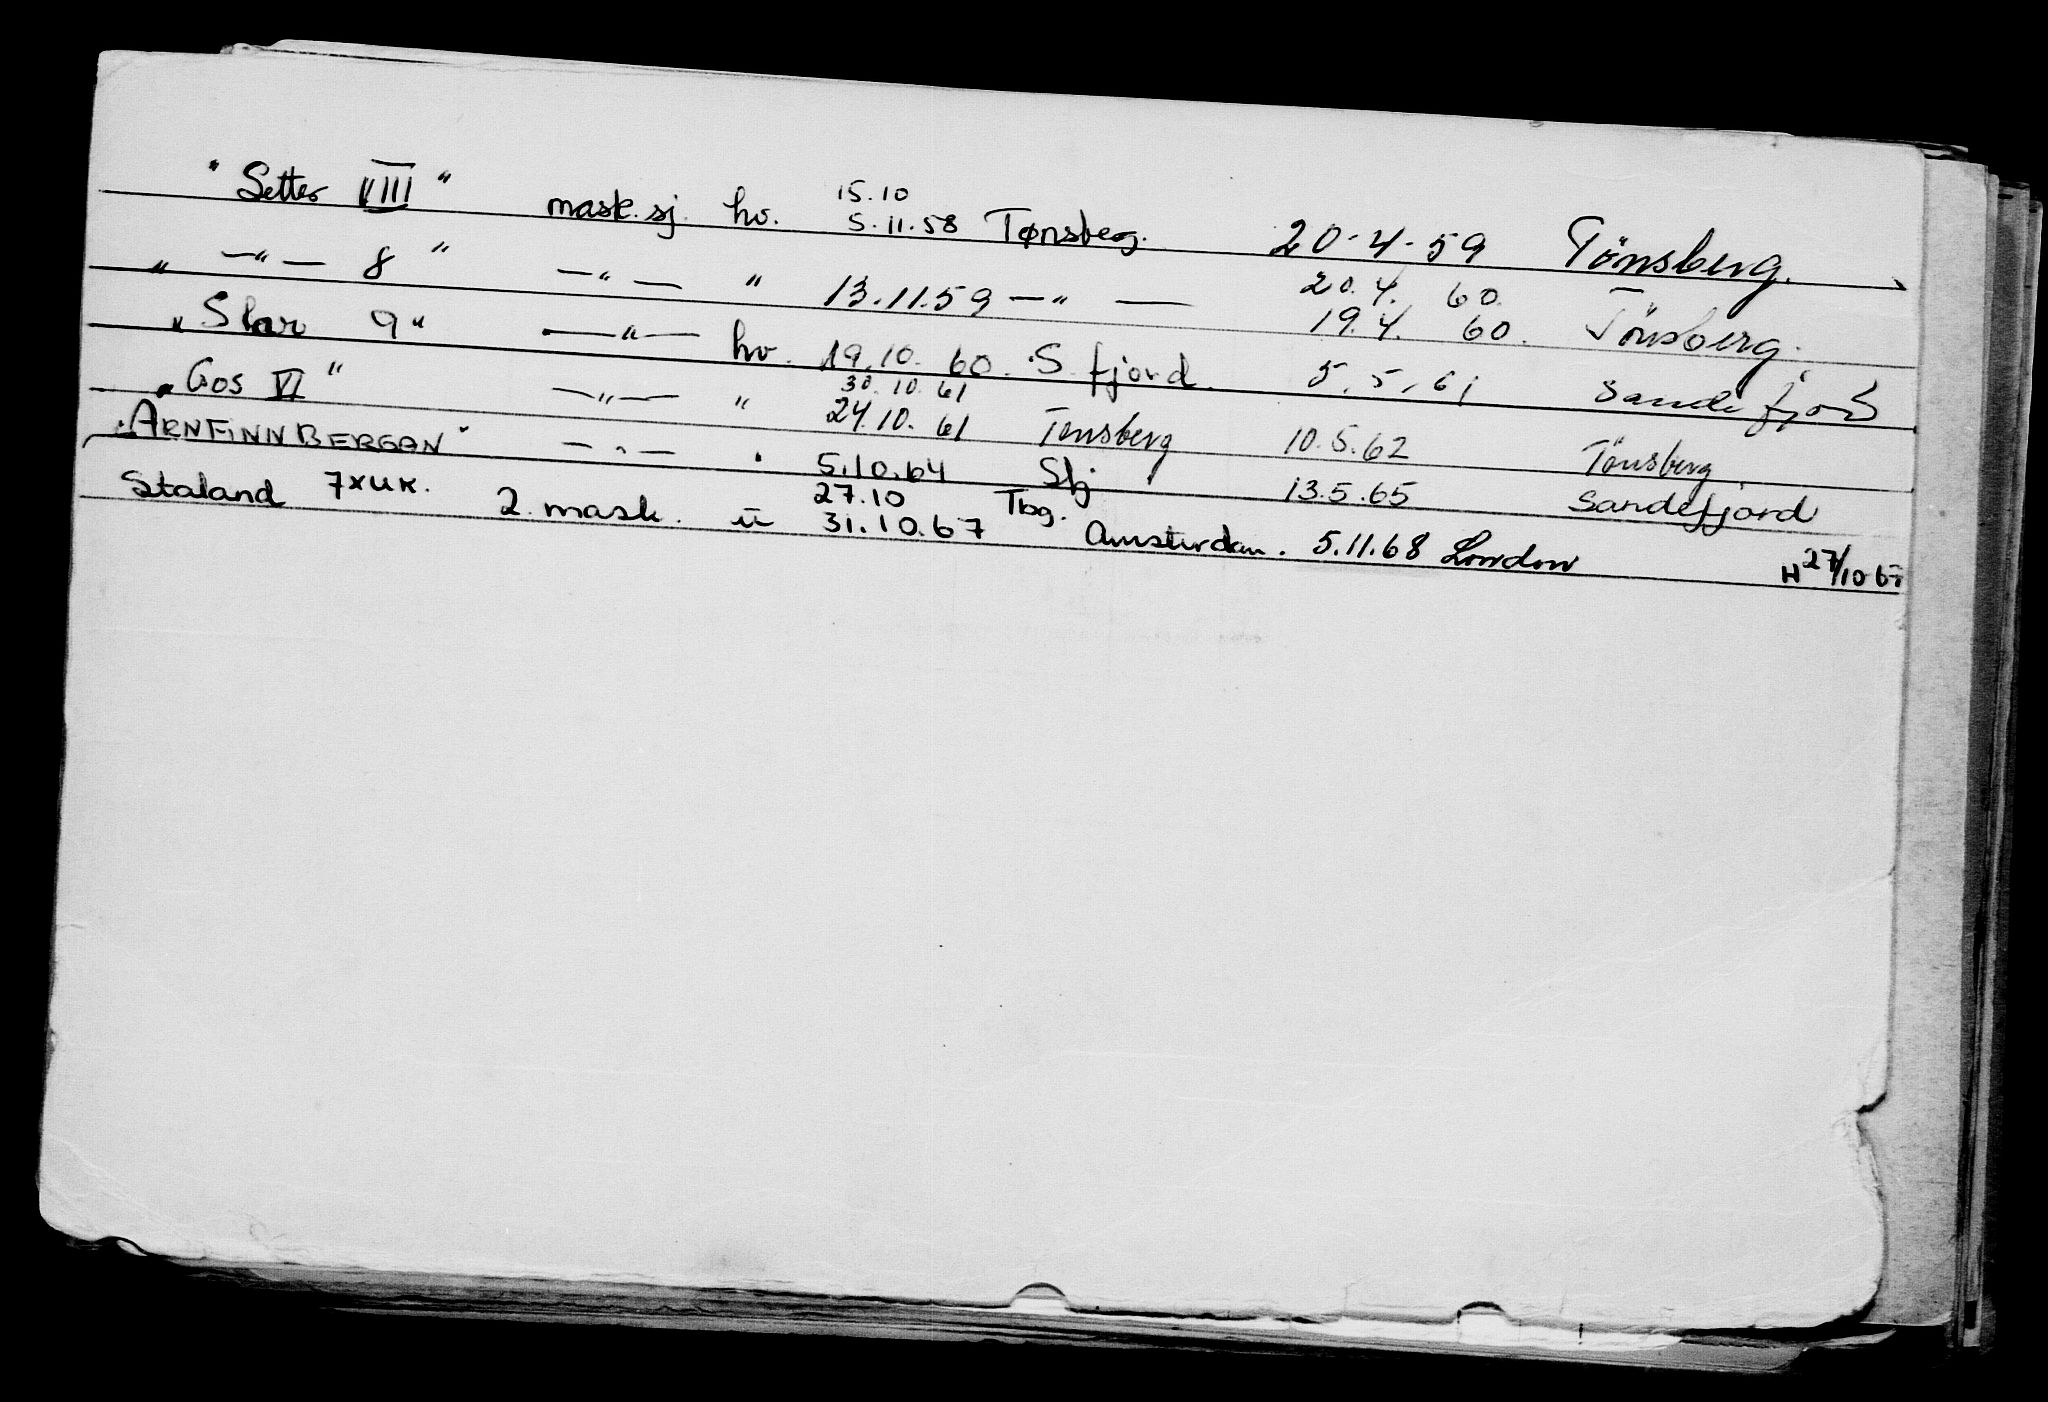 "Setter VIII" mask.sj. hv. 15.10 5.11.58 Tønsberg. 20-4-59 Tönsberg.
" —"— 8 " —"— " 13.11.59 —"— 20.4. 60. 19.4. 60. Tönsberg.
"Star 9" —"— hv. 19.10.60. S.fjord. 5.5.61 Sandefjord
"Gos VI" —"— " 30.10.61 24.10.61 Tønsberg 10.5.62 Tönsberg
"ARNFINN BERGAN" —"— " 5.10.64 Sfj 13.5.65 Sandefjord
Staland 7XUK. 2. mask. u 27.10 31.10.67 Tbg. Amsterdam. 5.11.68 London H 27/10-67